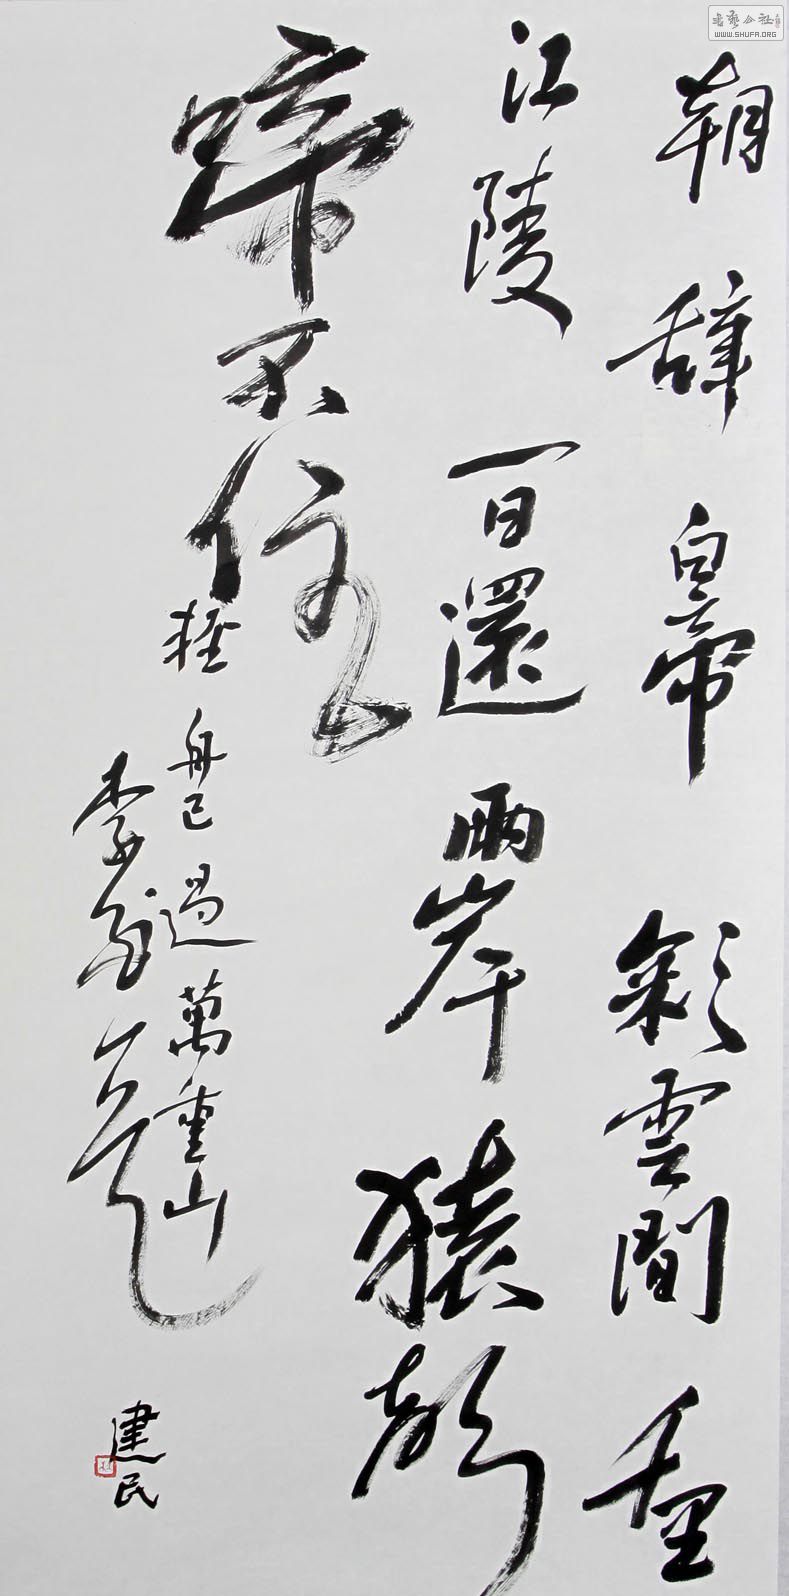 朝辞白帝彩雲間千里
江陵一日還兩岸猿聲
啼不住
輕舟已過萬重山
李白
建民
書藝公社
WWW.SHUFA.ORG